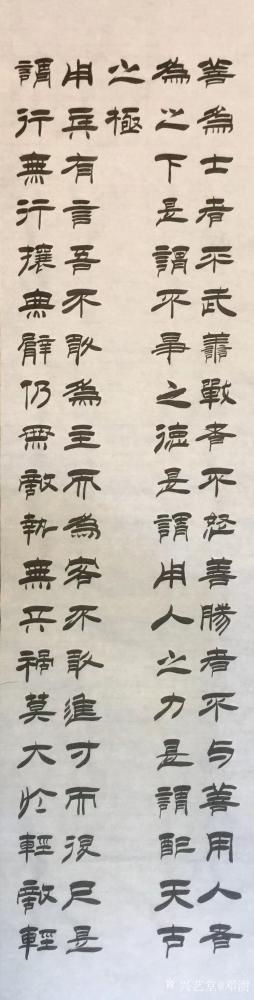 善為士者不武善戰者不怒善勝者不与善用人者
為之下是謂不爭之德是謂用人之力是謂配天古
之極
用兵有言吾不敢為主而為客不敢進寸而退尺是
謂行無行攘無臂仍無敵執無兵禍莫大於輕敵輕
兴艺堂@邓澍